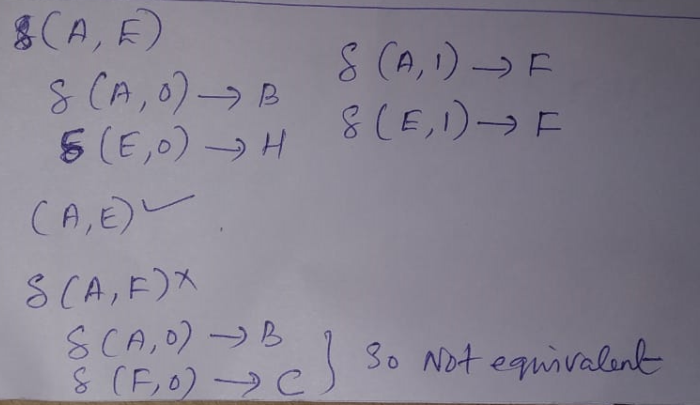 δ(A, E)
δ(A, 0) → B
δ(E, 0) → H
δ(A, 1) → F
δ(E, 1) → F
(A, E) ✓
δ(A, F) ×
δ(A, 0) → B
δ(F, 0) → C } So Not equivalent